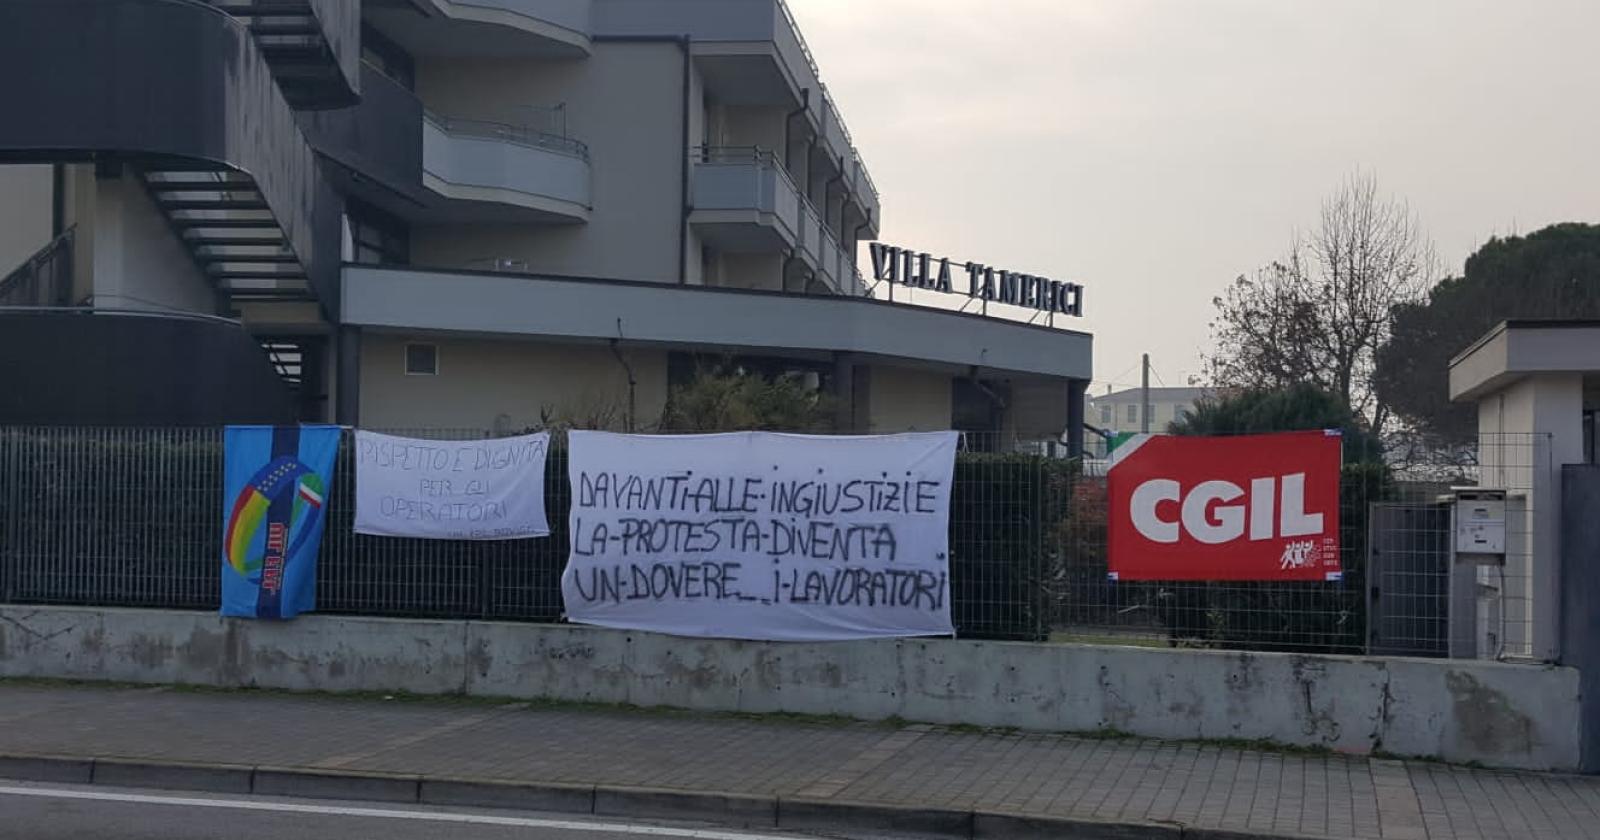 VILLA TAMERICI
RISPETTO E DIGNITÀ
PER GLI
OPERATORI
DAVANTI-ALLE-INGIUSTIZIE
LA-PROTESTA-DIVENTA
UN-DOVERE__I-LAVORATORI
CGIL